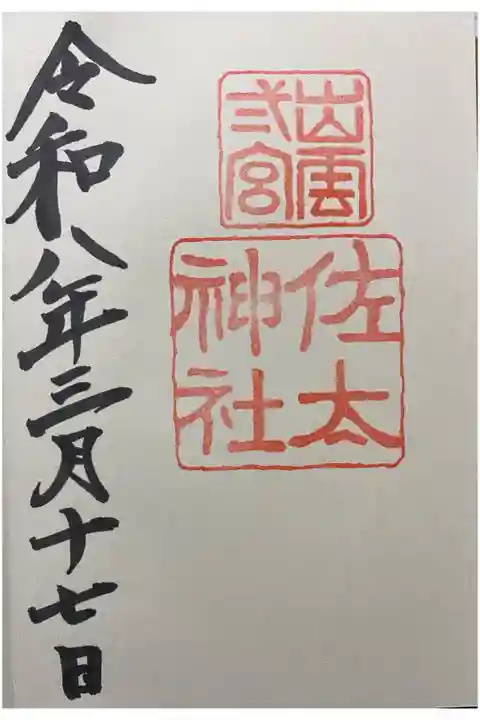 出雲
弐宮
佐太
神社
令和八年三月十七日